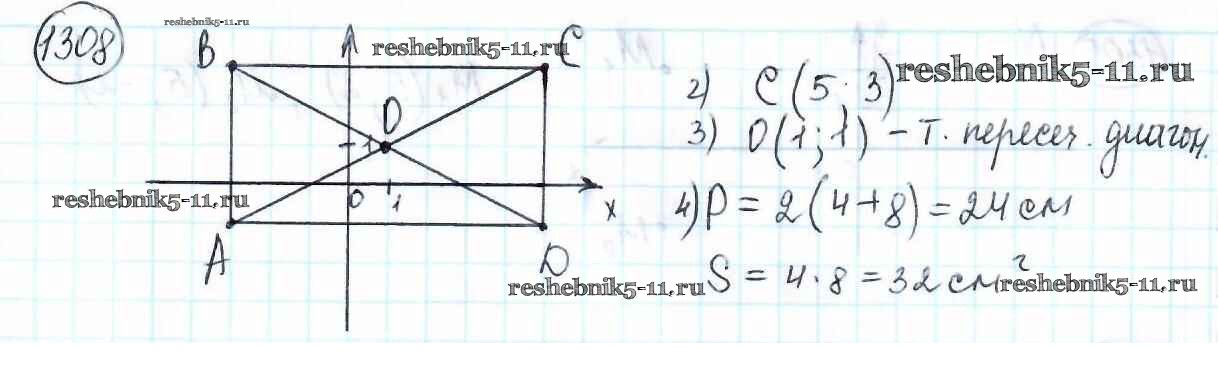 1308
reshebnik5-11.ru
B
reshebnik5-11.ru
C
O
1
reshebnik5-11.ru
0
1
x
A
D
2) C (5; 3)
reshebnik5-11.ru
3) O(1; 1) - т. пересеч. диагон.
4) P = 2(4+8) = 24 см
reshebnik5-11.ru
S = 4·8 = 32 см²
reshebnik5-11.ru